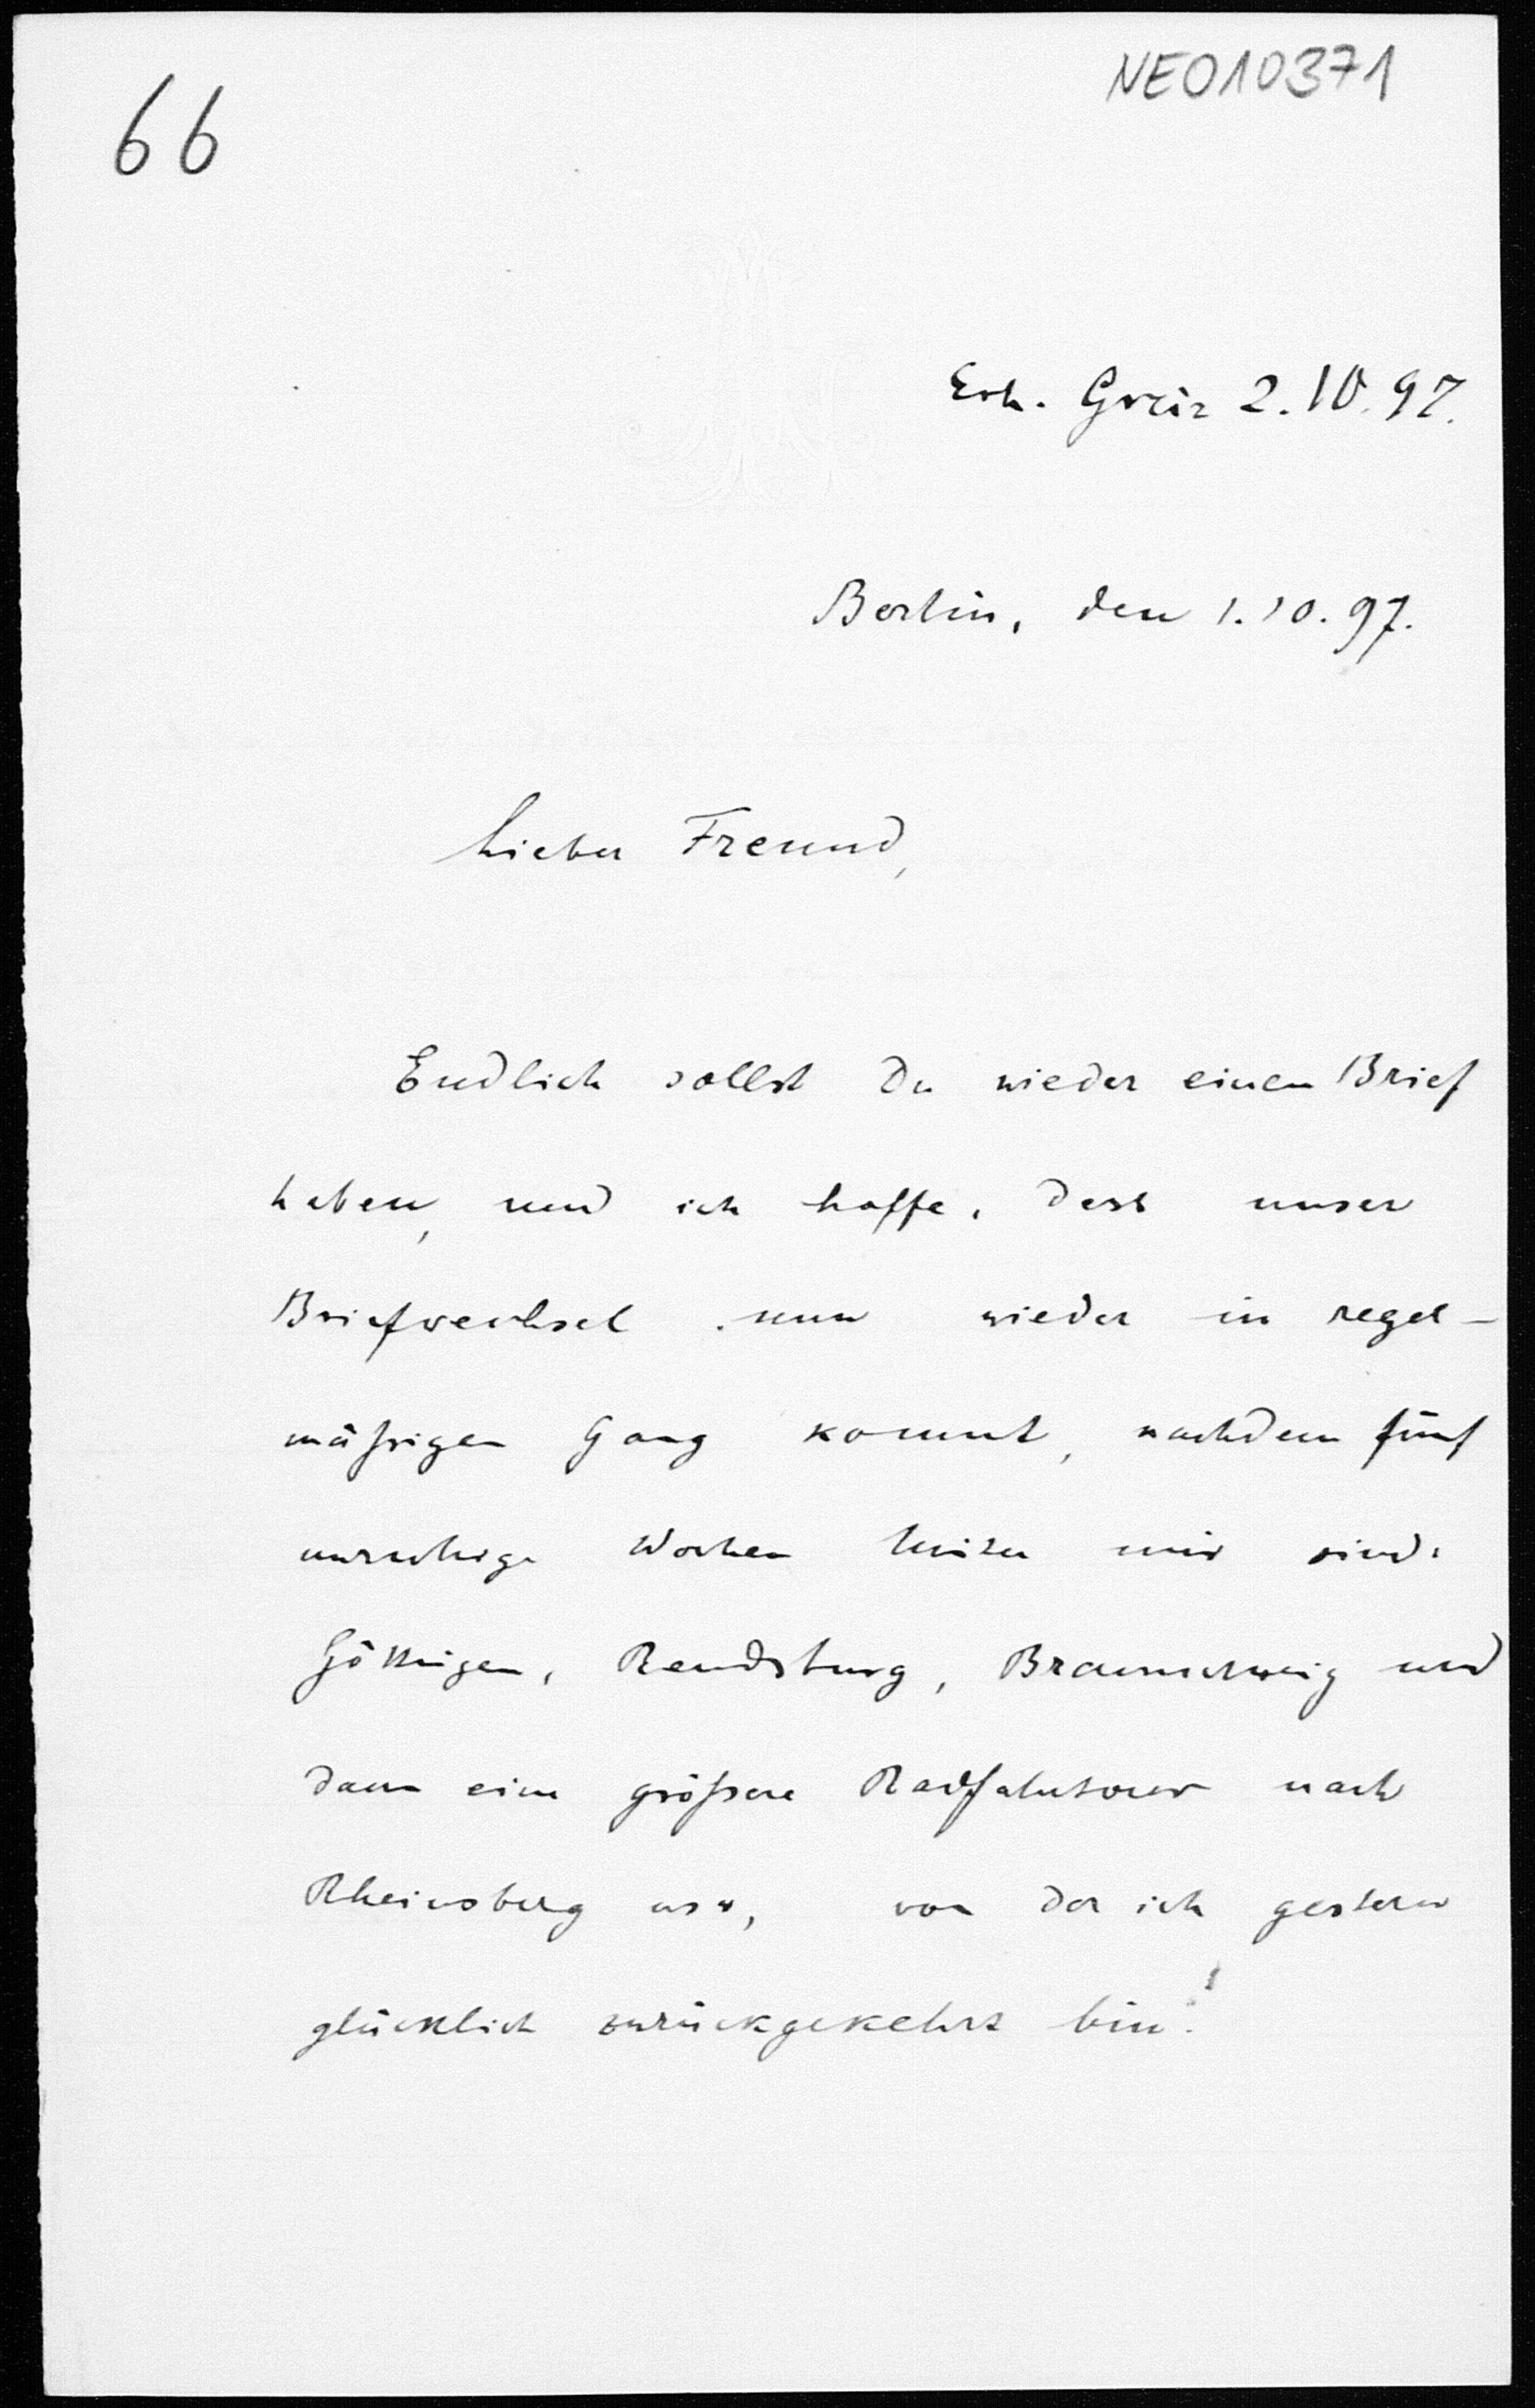 NE010371
66
Erh. Greiz 2.10.97.
Berlin, den 1.10.97.
Lieber Freund,
Endlich sollst Du wieder einen Brief
haben, und ich hoffe, dass unser
Briefwechsel nun wieder in regel-
mäßigen Gang kommt, nachdem fünf
unruhige Wochen hinter mir sind.
Göttingen, Rendsburg, Braunschweig und
dann eine größere Radfahrtour nach
Rheinsberg usw, von der ich gestern
glücklich zurückgekehrt bin!